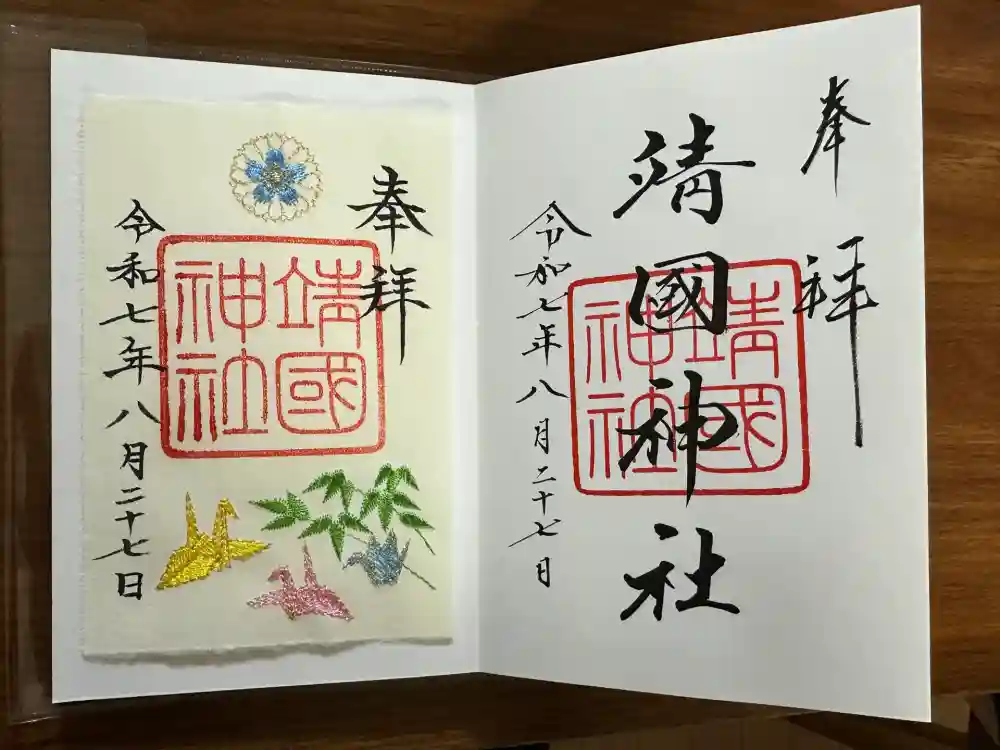 奉拜
靖國神社
令和七年八月二十七日
奉拝
靖國
神社
令和七年八月二十七日
靖國
神社